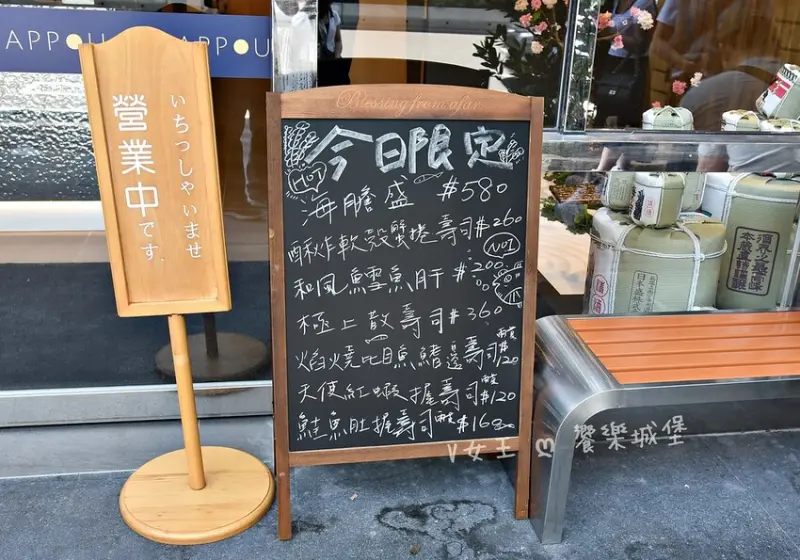 APPOU
APPOU
いちっしゃいませ
營業中です。
Blessing from afar
今日限定
HOT
海膽盛 $580
酥炸軟殼蟹捲壽司 $260
NO1
和風鱈魚肝 $200
極上散壽司 $360
焰燒比目魚鰭邊壽司 兩貫 $120
天使紅蝦握壽司 兩貫 $120
鮭魚肚握壽司 兩貫 $160
V女王 饗樂城堡